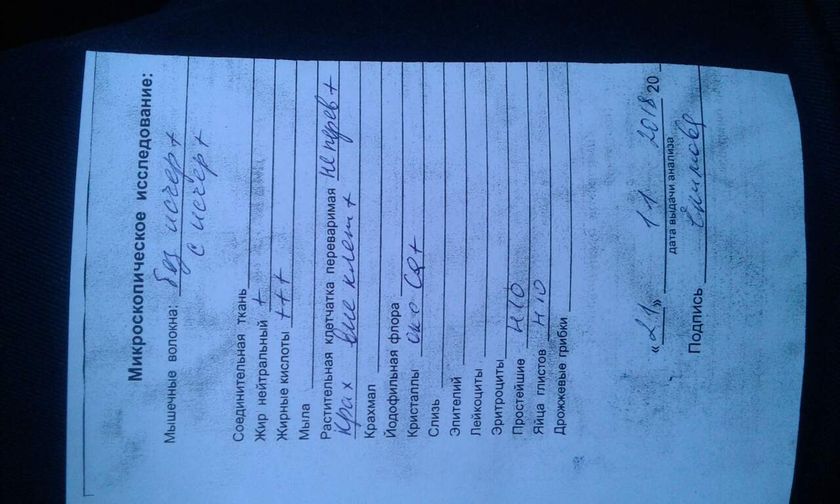 Микроскопическое исследование:
Мышечные волокна: без исчер +
с исчер +
Соединительная ткань
Жир нейтральный +
Жирные кислоты +++
Мыла
Растительная клетчатка переваримая неперев +
Крах вне клет +
Крахмал
Йодофильная флора
Кристаллы +
Слизь
Эпителий
Лейкоциты
Эритроциты
Простейшие н/о
Яйца глистов н/о
Дрожжевые грибки
«21» 11 2018 20
дата выдачи анализа
Подпись